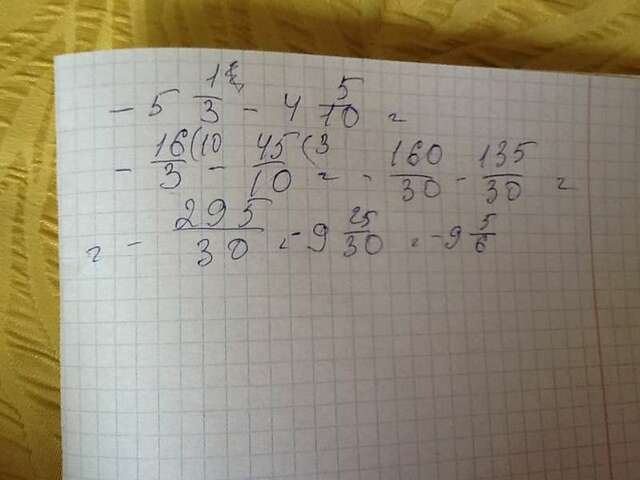 - 5 1/3 - 4 5/10 =
- 16/3 (10 - 45/10 (3 = - 160/30 - 135/30 =
= - 295/30 = -9 25/30 = -9 5/6